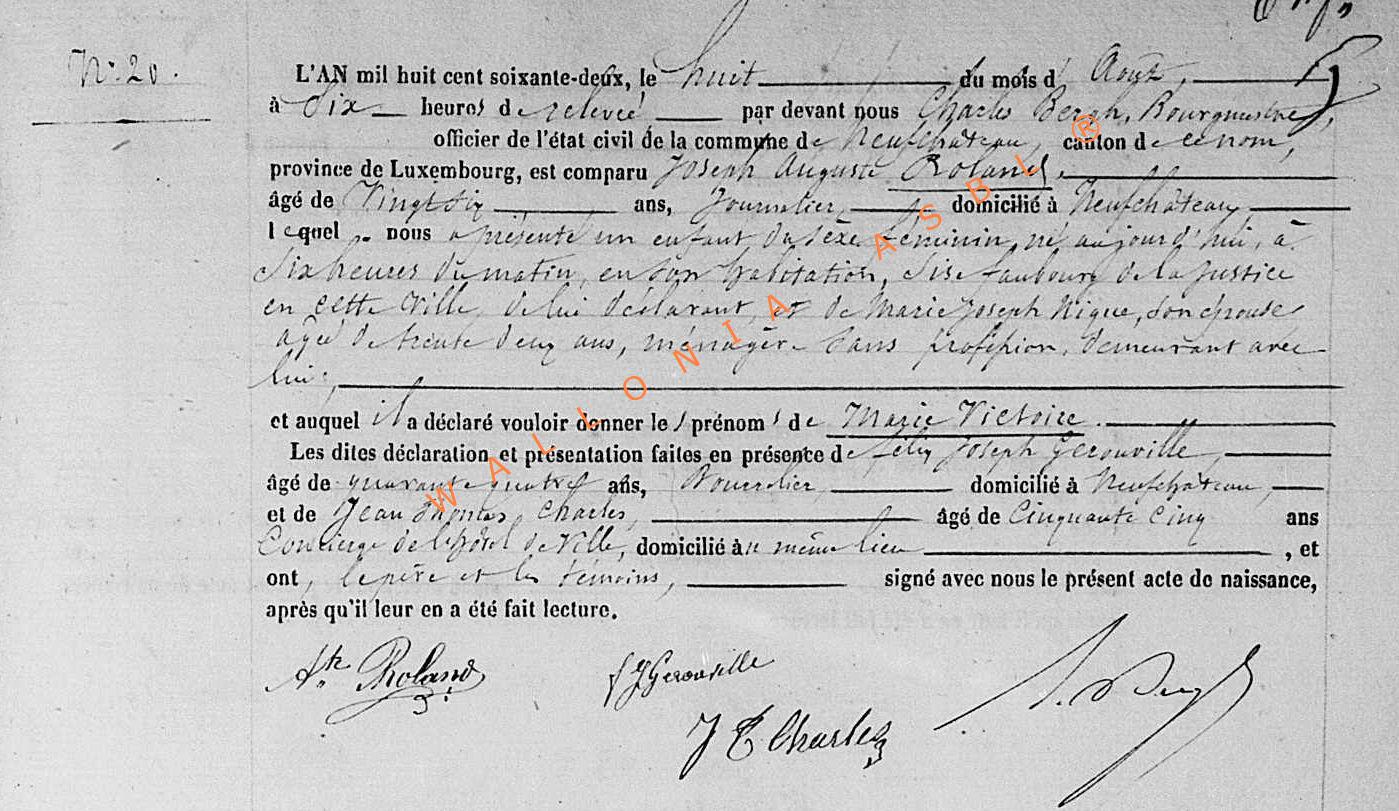 N° 20.
L'AN mil huit cent soixante-deux, le huit du mois d' Août,
à Six heures de relevée par devant nous Charles Bergh, Bourgmestre,
officier de l'état civil de la commune de Neufchâteau, canton de ce nom,
province de Luxembourg, est comparu Joseph Auguste Roland,
âgé de Vingt six ans, Journalier, domicilié à Neufchâteau,
lequel nous a présenté un enfant du sexe féminin, né aujourd'hui, à
Six heures du matin, en son habitation, sise faubourg de la Justice
en cette ville, de lui déclarant, et de Marie Joseph Nique, son épouse
agée de trente deux ans, ménagère sans profession, demeurant avec
lui;
et auquel il a déclaré vouloir donner les prénoms de Marie Victoire.
Les dites déclaration et présentation faites en présence de félix Joseph Gerouville,
âgé de quarante quatre ans, Bourrelier, domicilié à Neufchâteau,
et de Jean Thomas Charles, âgé de Cinquante Cinq ans
Concierge de l'hôtel de Ville, domicilié au même lieu, et
ont, le père et les témoins, signé avec nous le présent acte de naissance,
après qu'il leur en a été fait lecture.
Ate Roland
f J Gerouville
J T Charles
WALLONIA ASBL ®